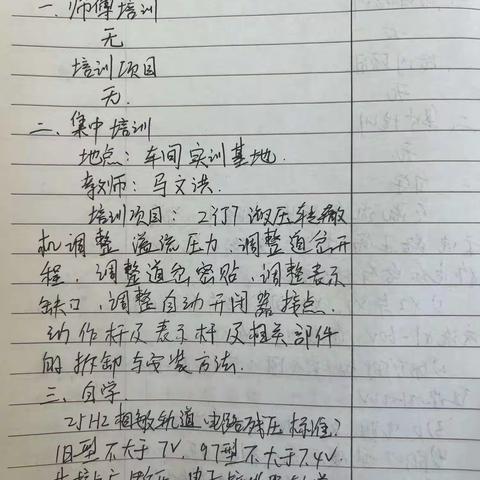 一、师傅培训
无
培训项目
无.
二、集中培训
地点：车间实训基地.
教师：马文洪.
培训项目：ZYJ7液压转辙
机调整溢流压力、调整道岔开
程、调整道岔密贴、调整表示
缺口、调整自动开闭器接点.
动作杆及表示杆及相关部件
的拆卸与安装方法.
三、自学.
25HZ相敏轨道电路残压标准?
旧型不大于7V, 97型不大于7.4V.